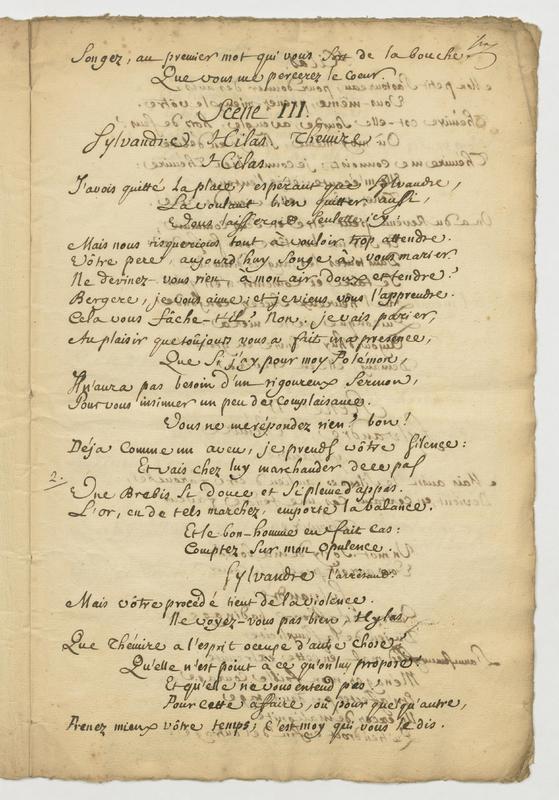 Songez, au premier mot qui vous sort de la bouche
Que vous me percerez le Coeur
Scene III.
Sylvandre, Hilas, Themire
Hilas
J'avois quitté la place, esperant que Sylvandre,
La voulant bien quitter aussi,
Vous laisseroit seulette icy;
Mais nous risquerions tout à vouloir trop attendre.
Vôtre pere, aujourd'huy songe à vous marier
Ne devinez-vous rien à mon air doux et tendre?
Bergere, je vous aime; et je viens vous l'apprendre.
Cela vous fâche-t-il? Non.. je vais parier,
Au plaisir que toujours vous a fait ma presence,
Que si j'ay pour moy Polémon,
Il n'aura pas besoin d'un rigoureux Sermon,
Pour vous insinuer un peu de Complaisance.
Vous ne me repondez rien? bon!
Déja comme un aveu, je prends vôtre silence:
Et vais chez luy marchander de ce pas
2.
Une Brebis si douce et si pleine d'appas.
L'or, en de tels marchez, emporte la balance.
Et le bon-homme en fait cas:
Comptez sur mon opulence.
Sylvandre l'arrêtant.
Mais vôtre procédé tient de la violence.
Ne voyez-vous pas bien, Hylas,
Que Thémire a l'esprit occupé d'autre chose
Qu'elle n'est point à ce qu'on luy propose:
Et qu'elle ne vous entend pas
Pour cette affaire, ou pour quelqu'autre,
Prenez mieux vôtre temps; c'est moy qui vous le dis.